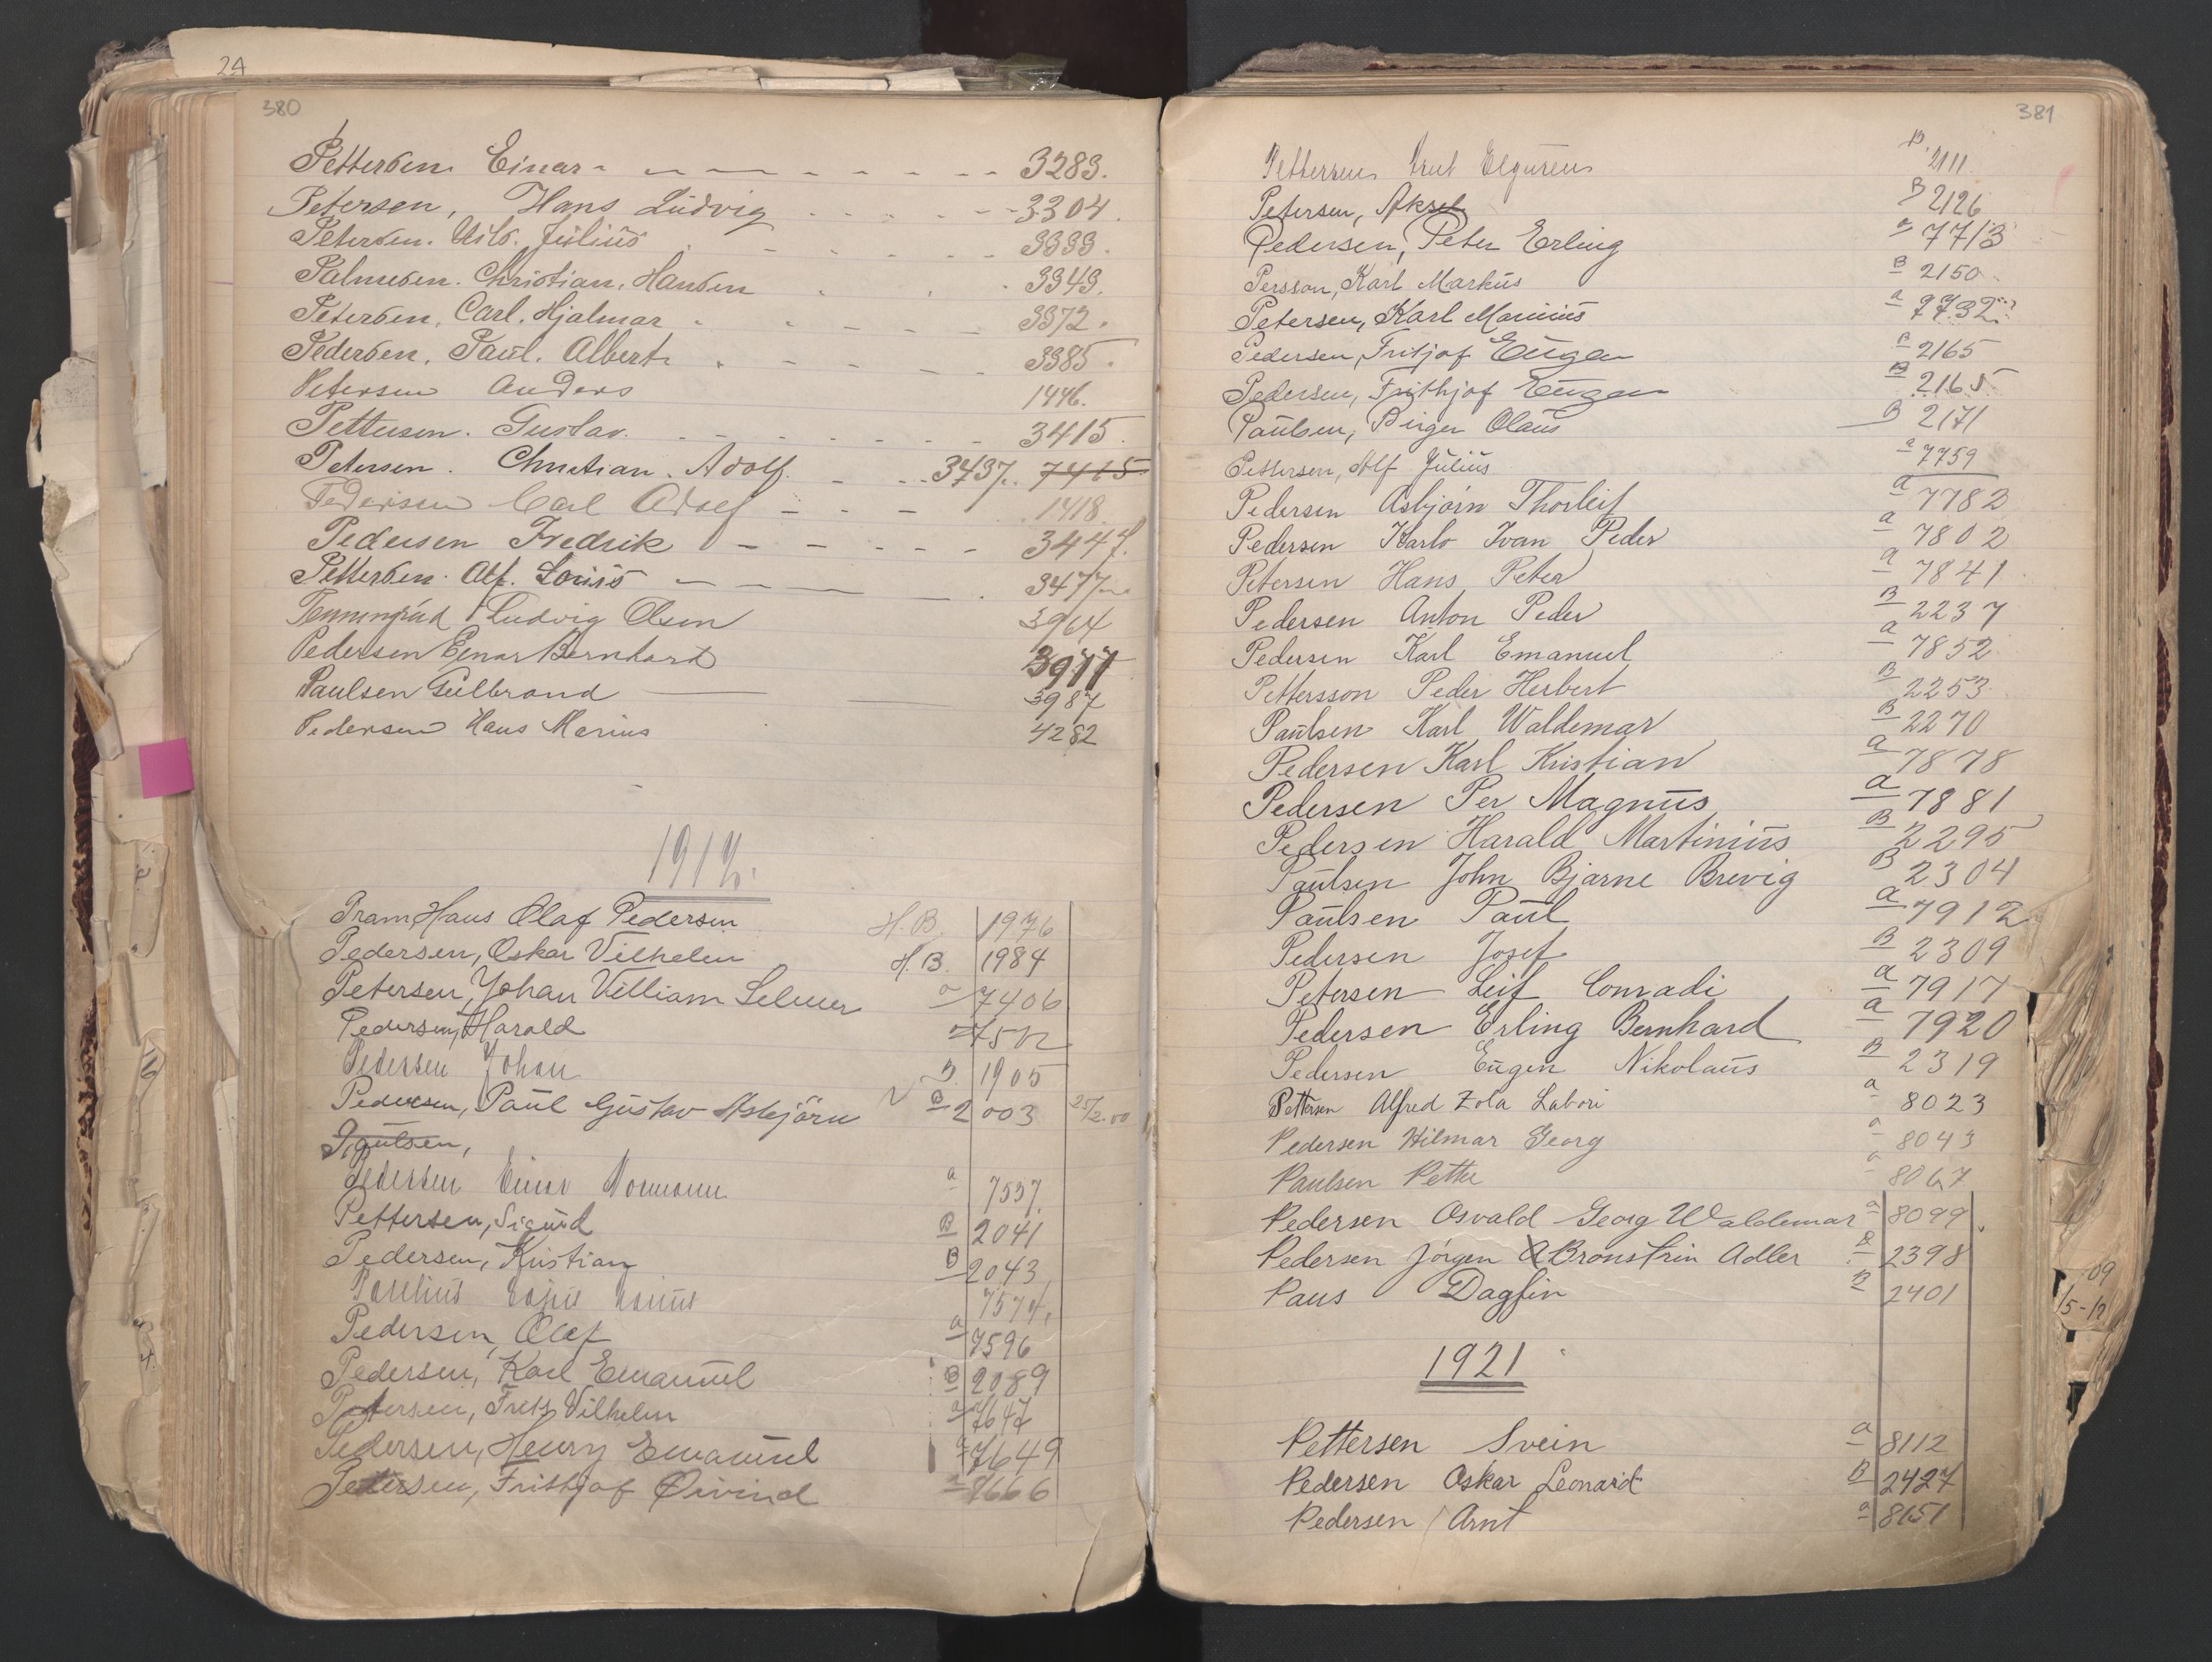 24
380
Pettersen Einar 3283.
Petersen, Hans Ludvig 3304.
Petersen. Nils. Julius 3333.
Palmesen. Christian. Hansen 3343.
Petersen. Carl. Hjalmar 3372.
Pedersen. Paul. Albert 3385.
Petersen Anders 1446.
Pettersen. Gustav. 3415.
Petersen. Christian. Adolf. 3437. 7415
Pedersen Carl Adolf 1418
Pedersen Fredrik 3447.
Pettersen. Alf. Louis 3477
Ludvig Olsen 3964
Pedersen Einar Bernhard 3977
Paulsen Gulbrand 3987
Pedersen Hans Marius 4282
191
Pram, Hans Olaf Pedersen H.B. 1976
Pedersen, Oskar Vilhelm H.B. 1984
Petersen, Johan Villiam Selmer a 7406
Pedersen, Harald 7512
Pedersen Johan B. 1905
Pedersen, Paul Gustav Asbjörn B 2003 25/2.00
Paulsen,
Pedersen Einar Normann a 7557.
Pettersen, Sigurd B 2041
Pedersen, Kristian B 2043
7574.
Pedersen, Olaf a 7596
Pedersen, Karl Emanuel B 2089
Petersen, Fritz Vilhelm a 7647
Pedersen, Henry Emanuel a 7649
Petersen, Frithjof Øivind a 7666
381
Pettersen B. 2111.
Petersen, Aksel B 2126
Pedersen, Peter Erling a 7713
Persson, Karl Markus B 2150
Petersen, Karl Marinius a 7732
Pedersen, Fritjof Eugen B 2165
Pedersen, Frithjof Eugen B 2165
Paulsen, Birger Olaus B 2171
Pettersen, Alf Julius a 7759
Pedersen Asbjørn Thorleif a 7782
Pedersen Karlo Ivan Peder a 7802
Petersen Hans Peter a 7841
Pedersen Anton Peder B 2237
Pedersen Karl Emanuel a 7852
Pettersson Peder Herbert B 2253
Paulsen Karl Waldemar B 2270
Pedersen Karl Kristian a 7878
Pedersen Per Magnus a 7881
Pedersen Harald Martinius B 2295
Paulsen John Bjarne Brevig B 2304
Paulsen Paul a 7912
Pedersen Josef B 2309
Petersen Leif Conradi a 7917
Pedersen Erling Bernhard a 7920
Pedersen Eugen Nikolaus B 2319
Pettersen Alfred Zola Labori a 8023
Pedersen Hilmar Georg a 8043
Paulsen Petter a 8067
Pedersen Osvald Georg Waldemar a 8099.
Pedersen Jørgen Bronstrin Adler B 2398
Paus Dagfin B 2401
1921
Pettersen Svein a 8112
Pedersen Oskar Leonard B 2427
Pedersen Arnt a 8151